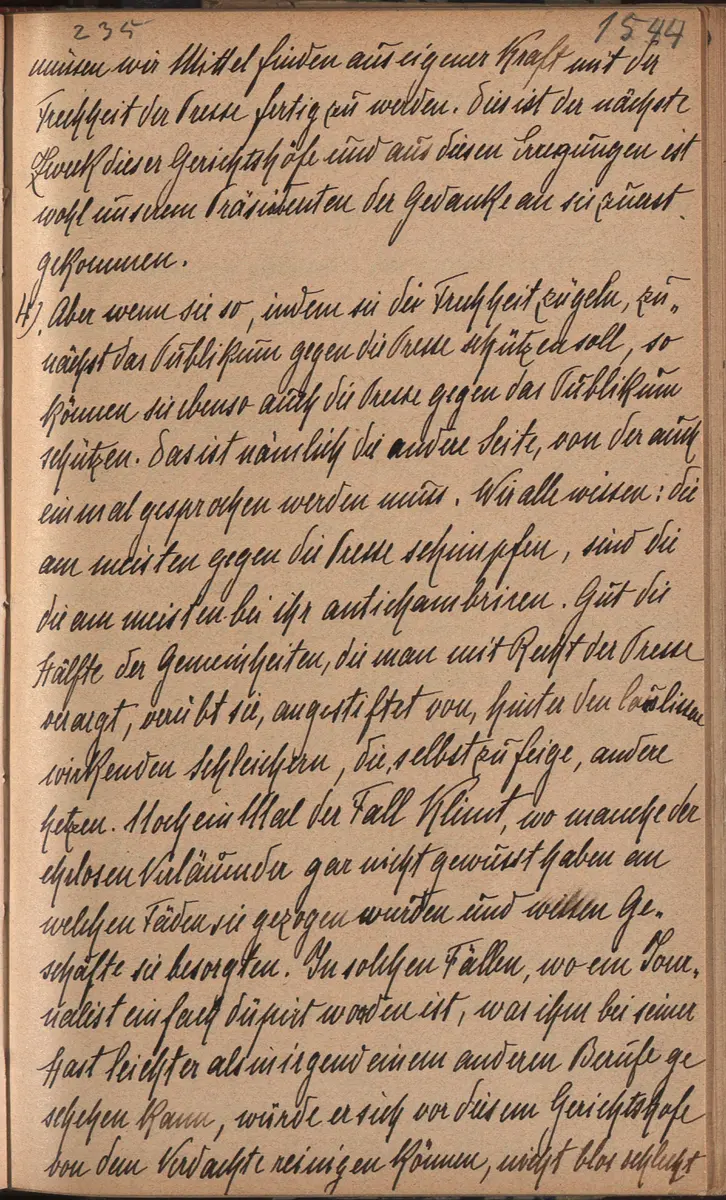 235 1544
müssen wir Mittel finden aus eigener Kraft mit der
Frechheit der Presse fertig zu werden. Dies ist der nächste
Zweck dieser Gerichtshöfe und aus diesen Erregungen ist
wohl unserem Präsidenten der Gedanke an sie zuerst
gekommen.
4). Aber wenn sie so, indem sie die Frechheit zügeln, zu„
nächst das Publikum gegen die Presse schützen soll, so
können sie ebenso auch die Presse gegen das Publikum
schützen. Das ist nämlich die andere Seite, von der auch
einmal gesprochen werden muss. Wir alle wissen: die
am meisten gegen die Presse schimpfen, sind die
die am meisten bei ihr antichambriren. Gut die
Hälfte der Gemeinheiten, die man mit Recht der Presse
verargt, verübt sie, angestiftet von, hinter den Coulissen
wirkenden Schleichern, die, selbst zu feige, andere
hetzen. Noch ein Mal der Fall Klimt, wo manche der
ehrlosen Verläumder gar nicht gewusst haben an
welchen Fäden sie gezogen wurden und wessen Ge„
schäfte sie besorgten. In solchen Fällen, wo ein Jour„
nalist einfach düpirt worden ist, was ihm bei seiner
Hast leichter als in irgend einem anderen Berufe ge
schehen kann, würde er sich vor diesem Gerichtshofe
von dem Verdachte reinigen können, nicht blos schlecht